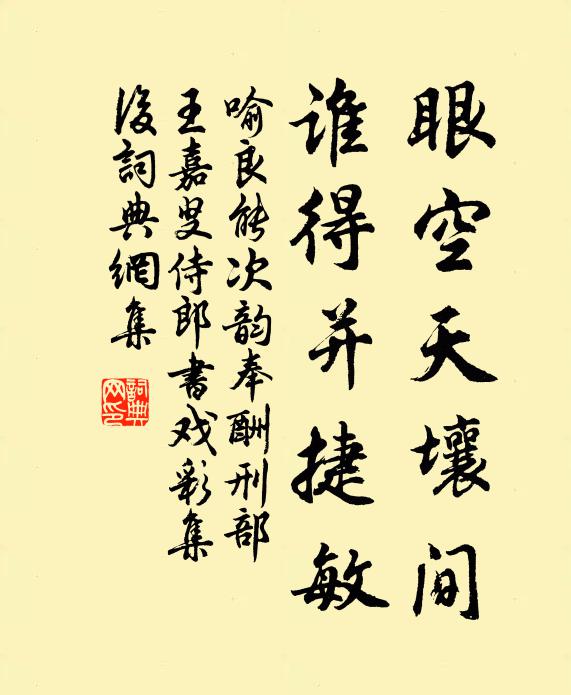 眼空天壤间
谁得并捷敏
喻良能次韵奉酬刑部
王嘉叟侍郎书戏彩集
后词典网集
词典网印